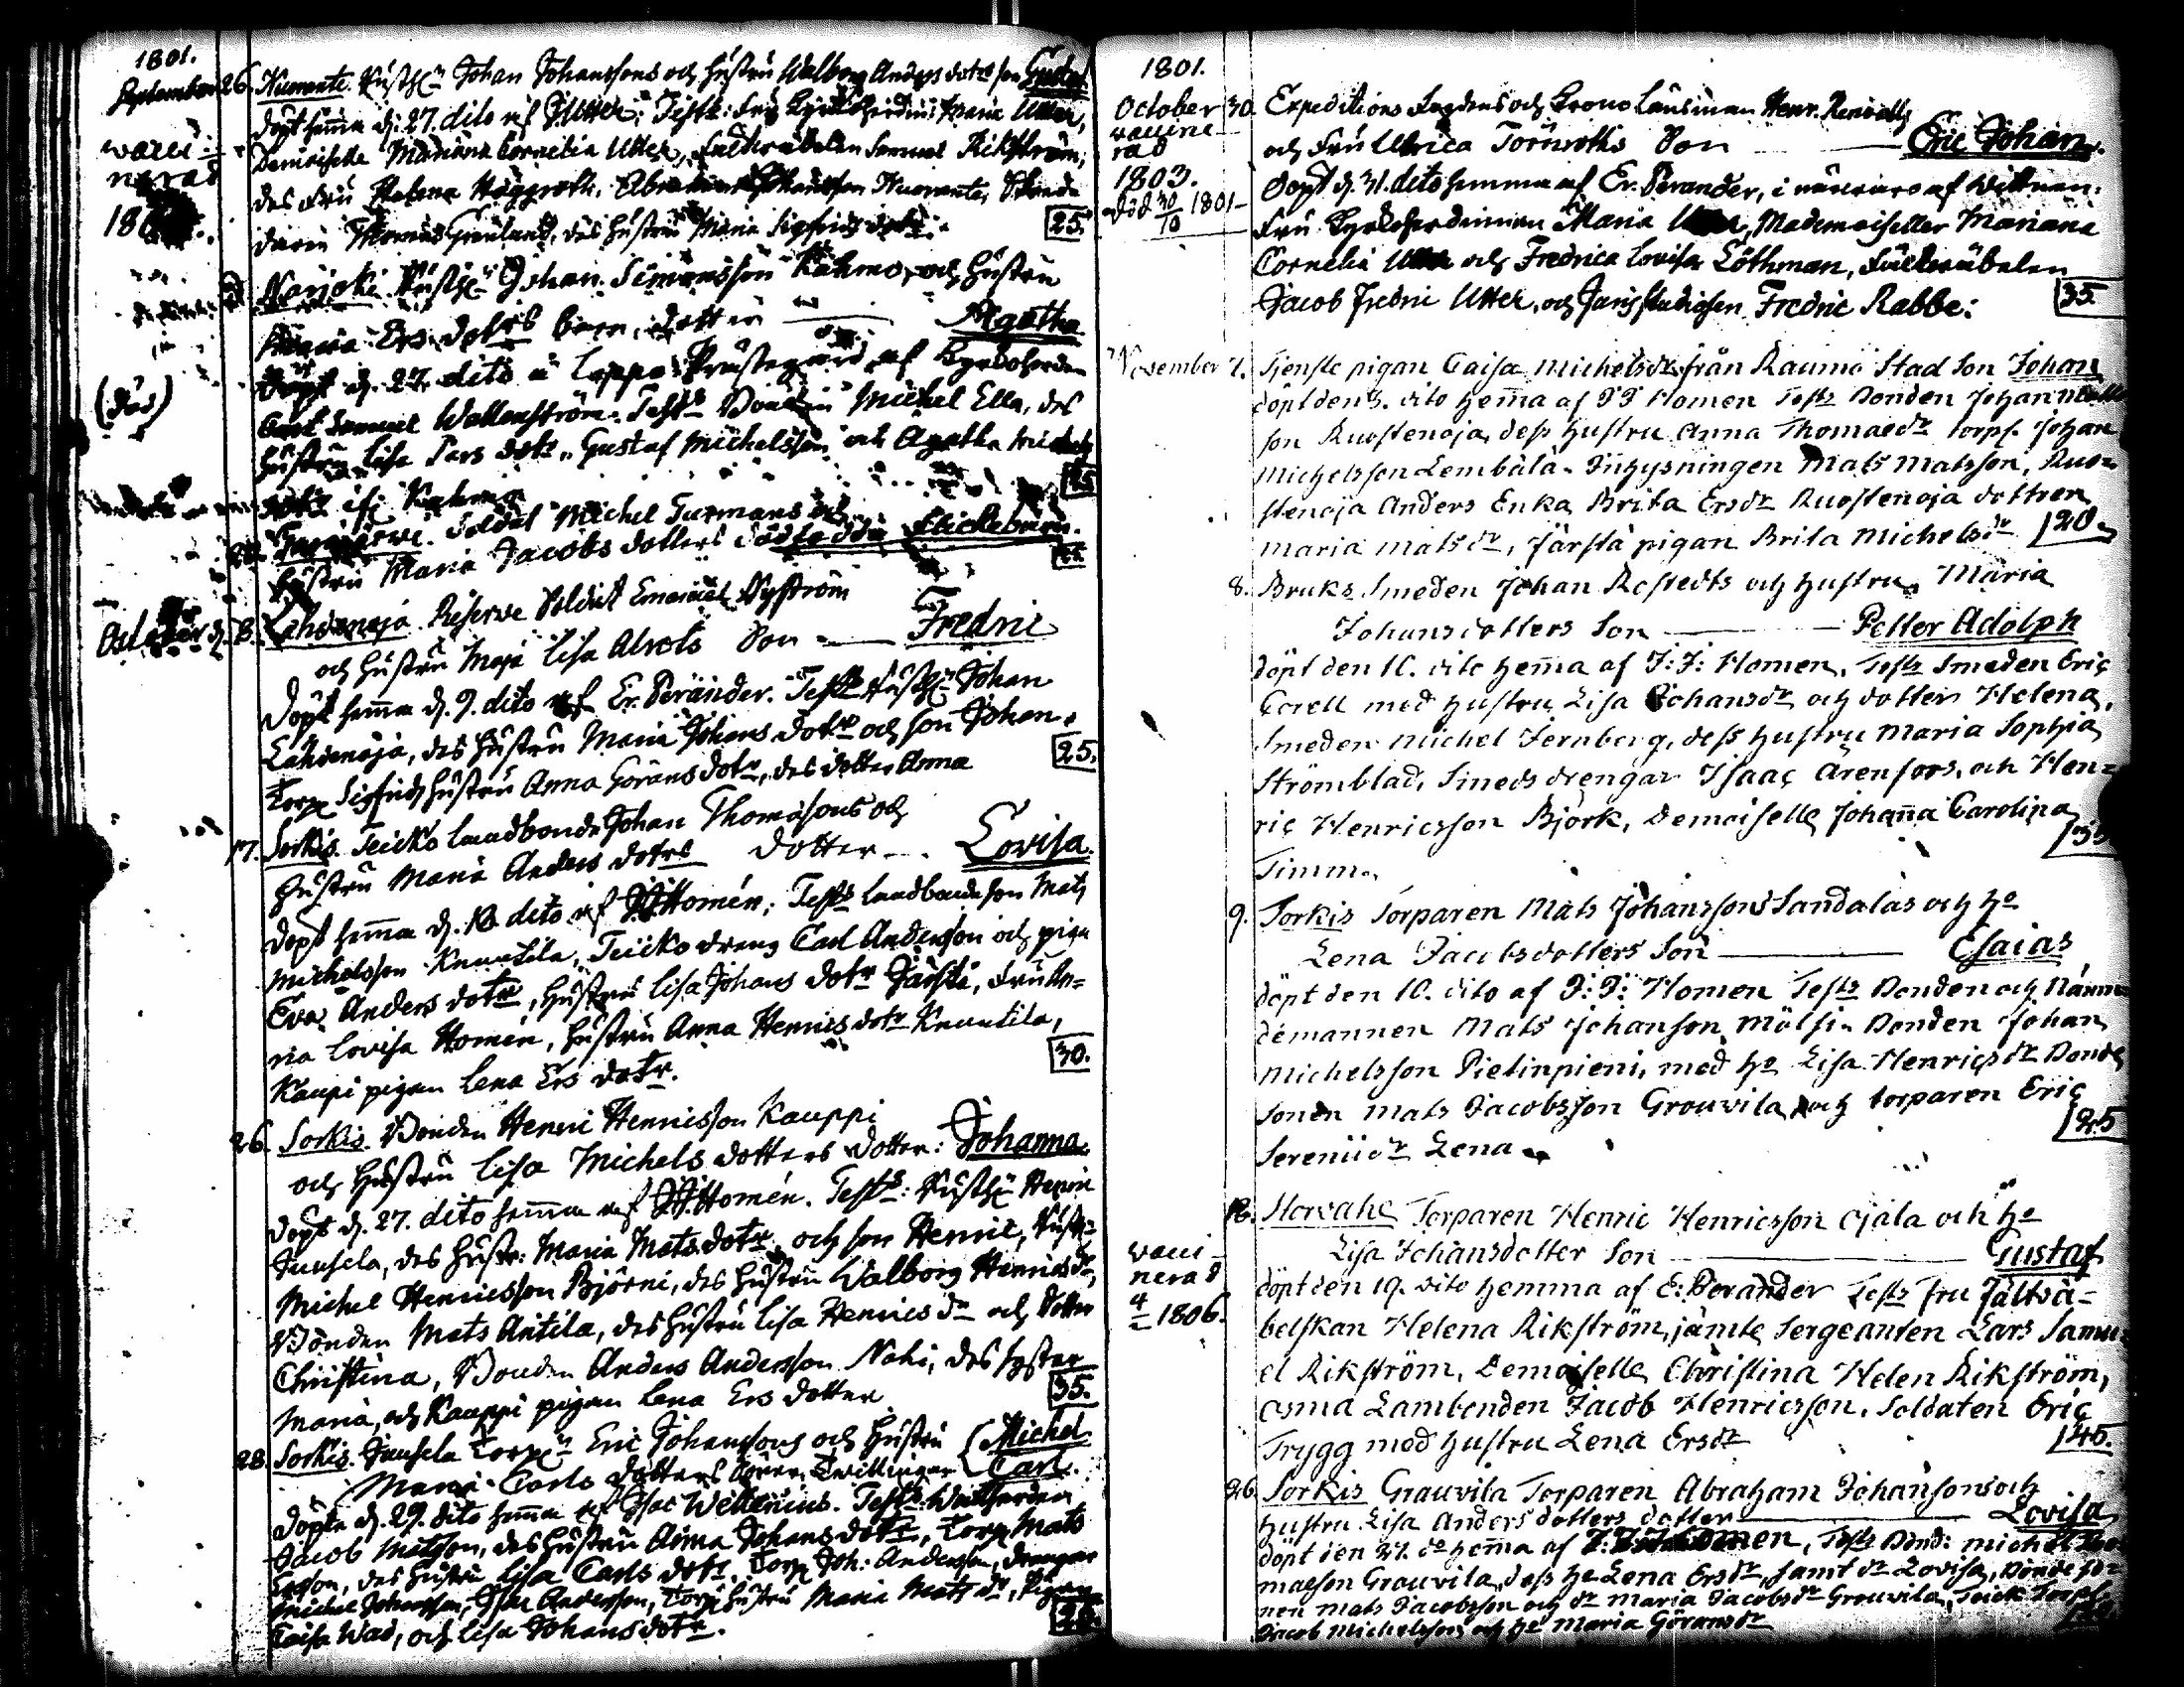 1801.
September 26. Kuorante. Rusth: Johan Johanssons och hustru Walborg Anders dotrs son Gustaf
döpt hemma d. 27. dito af Utter; Testes: Fru Kyrkoherdin: Maria Utter,
Demoiselle Mariana Cornelia Utter, Fältwäbelen Samuel Rikström,
des Fru Helena Häggroth. Abraham Johansson Kuorante,
Thomas Grönlund, des hustru Maria Sigfrids dotr.
25.
waccinerad
180
Narjoki. Rusth: Johan Simonsson Kahmo, och hustru
Maria Ers dotrs barn, dotter Agatha
döpt d. 27. dito i Lappo Prästegård af Kyrkoherden
Samuel Wallenström. Tests Bonden Michel Ella, des
hustru Lisa Pers dotr, Gustaf Michelsson och Agatha Michels
dotr Kahmo
25
(död)
28. Soldat Michel Turmans och
hustru Maria Jacobs dotters dödfödda Flickebarn.
October d. 8. Lahdenoja Reserve Soldat Emanuel Nyström
och hustru Maja Lisa Abrols Son Fredric
Döpt hemma d. 9. dito af Er. Perander. Tests Rusth: Johan
Lahdenoja, des hustru Maria Johans dotr och son Johan.
Torp: Sigfrids hustru Anna Görans dotr, des dotter Anna
25.
17. Sorkis. Teicko landbonde Johan Thomasons och
hustru Maria Anders dotrs dotter Lovisa.
Döpt hemma d. 18 dito af JJ Homén; Tests landbonde son Mats
Michelsson Knuutila, Teicko dreng Carl Andersson och piga
Eva Anders dotr, hustru Lisa Johans dotr Järstä, Fru Ma=
ria Lovisa Homén, hustru Anna Henrics dotr Knuutila,
Kaupi pigan Lena Ers dotr.
30.
26. Sorkis. Bonden Henric Henricsson Kauppi
och hustru Lisa Michels dotters dotter: Johanna
Döpt d. 27. dito hemma af JJ Homén. Tests: Rusth: Henric
Juusela, des hustr: Maria Mats dotr och son Henric, Rusth:
Michel Henricsson Björni, des hustru Walborg Henrics dr,
Bonden Mats Antila, des hustru Lisa Henrics dr och dotter
Christina, Bonden Anders Andersson Nohi, des syster
Maria, och Kauppi pigan Lena Ers dotter
35.
28. Sorkis. Juusela Torp: Eric Johanssons och hustru
Maria Carls dotters söner, Twillingar { Michel Carl.
Döpta d. 29. dito hemma af Isac Wellenius. Tests:
Jacob Matsson, des hustru Anna Johans dotr, Torp: Mats
Ersson, des hustru Lisa Carls dotr. Torp: Joh: Andersson, drengar
Michel Johansson, Isac Andersson, Torp: hustru Maria Mats dr, Pigan
Caisa Wad, och Lisa Johans dotr.
1801.
October 30. Expeditions Fogdens och Krono Länsman Henr. Renvalls
och Fru Ulrica Törnroths Son Eric Johan.
döpt d. 31. dito hemma af Er. Perander, i närvaro af wittnen:
Fru Kyrkoherdinnan Maria Utter, Mademoiseller Mariana
Cornelia Utter och Fredrica Lovisa Löthman, Fältwäbelen
Jacob Fredric Utter, och Juris Studiosen Fredric Rabbe:
35.
waccinerad
1803.
död 30/10 1801
November 7. Tjenste pigan Caisa Michelsdr från Raumo Stad Son Johan
döpt den 8. dito hemma af JJ Homen Tests Bonden Johan
son Ruostenoja, dess hustru Anna Thomaedr torps. Johan
Michelsson Lembälä. Inhysningen Mats Matsson, Ruo=
stenoja Anders Enka Brita Ersdr Ruostenoja dottren
Maria Matsdr, Järstä pigan Brita Michelsdr
20
8. Bruks Smeden Johan Rostedts och hustru Maria
Johansdotters Son Petter Adolph
döpt den 10. dito hemma af J: J: Homen. Tests Smeden Eric
Corell med hustru Lisa Johansdr och dotter Helena,
Smeden Michel Fernberg, dess hustru Maria Sophia
Strömblad, Smeds drengar Isaac Arenfors, och Hen=
ric Henricsson Björk, Demoiselle Johanna Carolina
Timm.
35
9. Sorkis Torparen Mats Johanssons Sandalas och ho
Lena Jacobsdotters Son Esaias
döpt den 10. dito af J: J: Homen Tests Bonden och Nämn
demannen Mats Johanson Mölsi. Bonden Johan
Michelsson Pietinpieni, med ho Lisa Henricsdr Bonde
Sonen Mats Jacobsson Grouvila, och torparen Eric
Sereniidr Lena
25
18. Horvahe Torparen Henric Henricsson Ojala och ho
Lisa Johansdotter Son Gustaf
döpt den 19. dito hemma af E: Perander Tests Fru Fältvä=
belskan Helena Rikström, jämte Sergeanten Lars Samu
el Rikström, Demoiselle Christina Helen Rikström,
Lambonden Jacob Henricsson, Soldaten Eric
Trygg med hustru Lena Ersdr
45.
waccinerad
4/= 1806.
26. Sorkis Grouvila Torparen Abraham Johansons och
hustru Lisa Anders dotters dotter Lovisa
döpt den 27. do hemma af J: J: Homen, Tests Bond: Michel
maeson Grouvila, dess ho Lena Ersdr, samt dr Lovisa, Bonde so=
nen Mats Jacobsson och dr Maria Jacobsdr Grouvila, Teick Torp:
Jacob Michelsson och ho Maria Göransdr